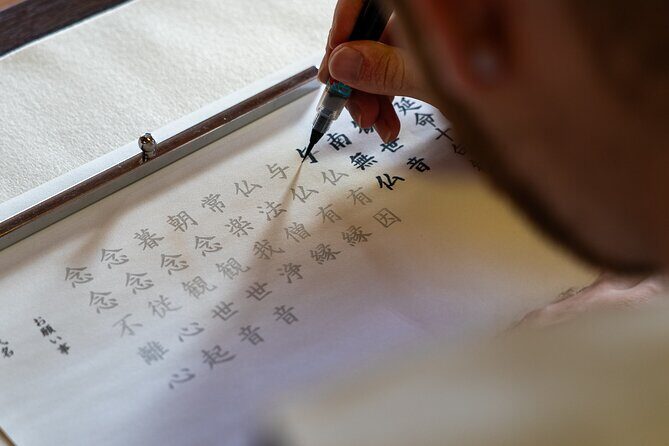 延命十句
世音
南無仏
与仏有因
与仏有縁
仏法僧縁
常楽我浄
朝念観世音
暮念観世音
念念従心起
念念不離心
お願い事
名